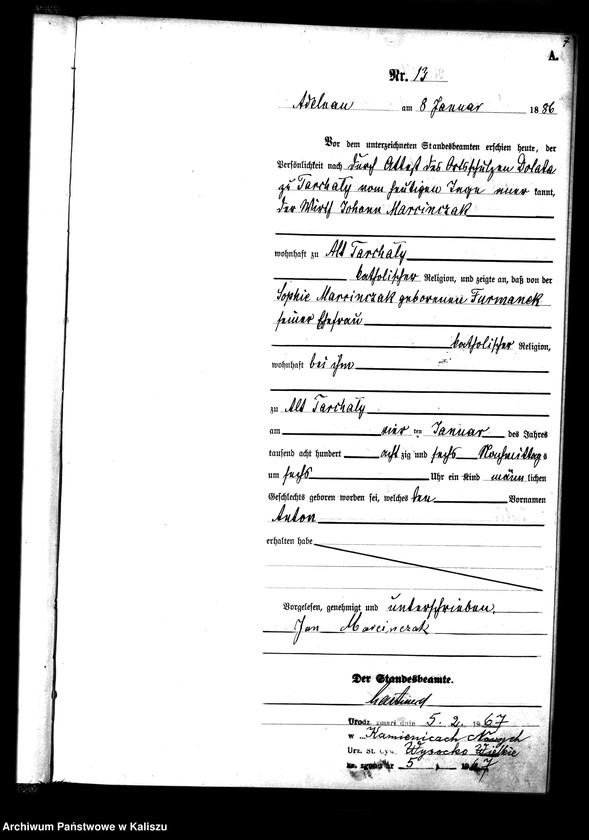 7
A.
Nr. 13
Adelnau am 8 Januar 1886
Vor dem unterzeichneten Standesbeamten erschien heute, der
Persönlichkeit nach durch Attest des Ortsschulzen Dolata
zu Tarchaly vom heutigen Tage aner kannt,
der Wirth Johann Marcinczak
wohnhaft zu Alt Tarchaly
katholischer Religion, und zeigte an, daß von der
Sophie Marcinczak geborenen Furmanek
seiner Ehefrau
katholischer Religion,
wohnhaft bei ihm
zu Alt Tarchaly
am vier ten Januar des Jahres
tausend acht hundert acht zig und sechs Nachmittags
um sechs Uhr ein Kind männ lichen
Geschlechts geboren worden sei, welches den Vornamen
Anton
erhalten habe
Vorgelesen, genehmigt und unterschrieben.
Jan Marcinczak
Der Standesbeamte.
Urodz. zmarł dnia 5. 2. 1967
w Kamienicach Nowych
Urz. St. Cyw. Wysocko Wielkie
zgonu nr 5 1967
Archiwum Państwowe w Kaliszu